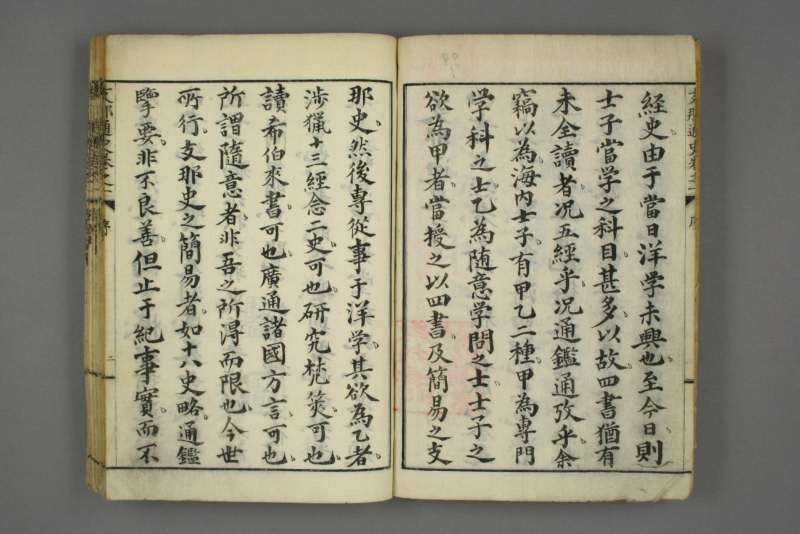 経史由于當日洋学未興也至今日則
士子當学之科目甚多以故四書猶有
未全讀者况五經乎况通鑑通攷乎余
竊以為海内士子有甲乙二種甲為專門
学科之士乙為随意学問之士士子之
欲為甲者當授之以四書及簡易之支
那史然後專從事于洋学其欲為乙者
渉猟十三經念二史可也研究梵筴可也
讀希伯來書可也廣通諸國方言可也
所謂隨意者非吾之所得而限也今世
所行支那史之簡易者如十八史略通鑑
擥要非不良善但止于紀事實而不
支那通史卷之一
序
二